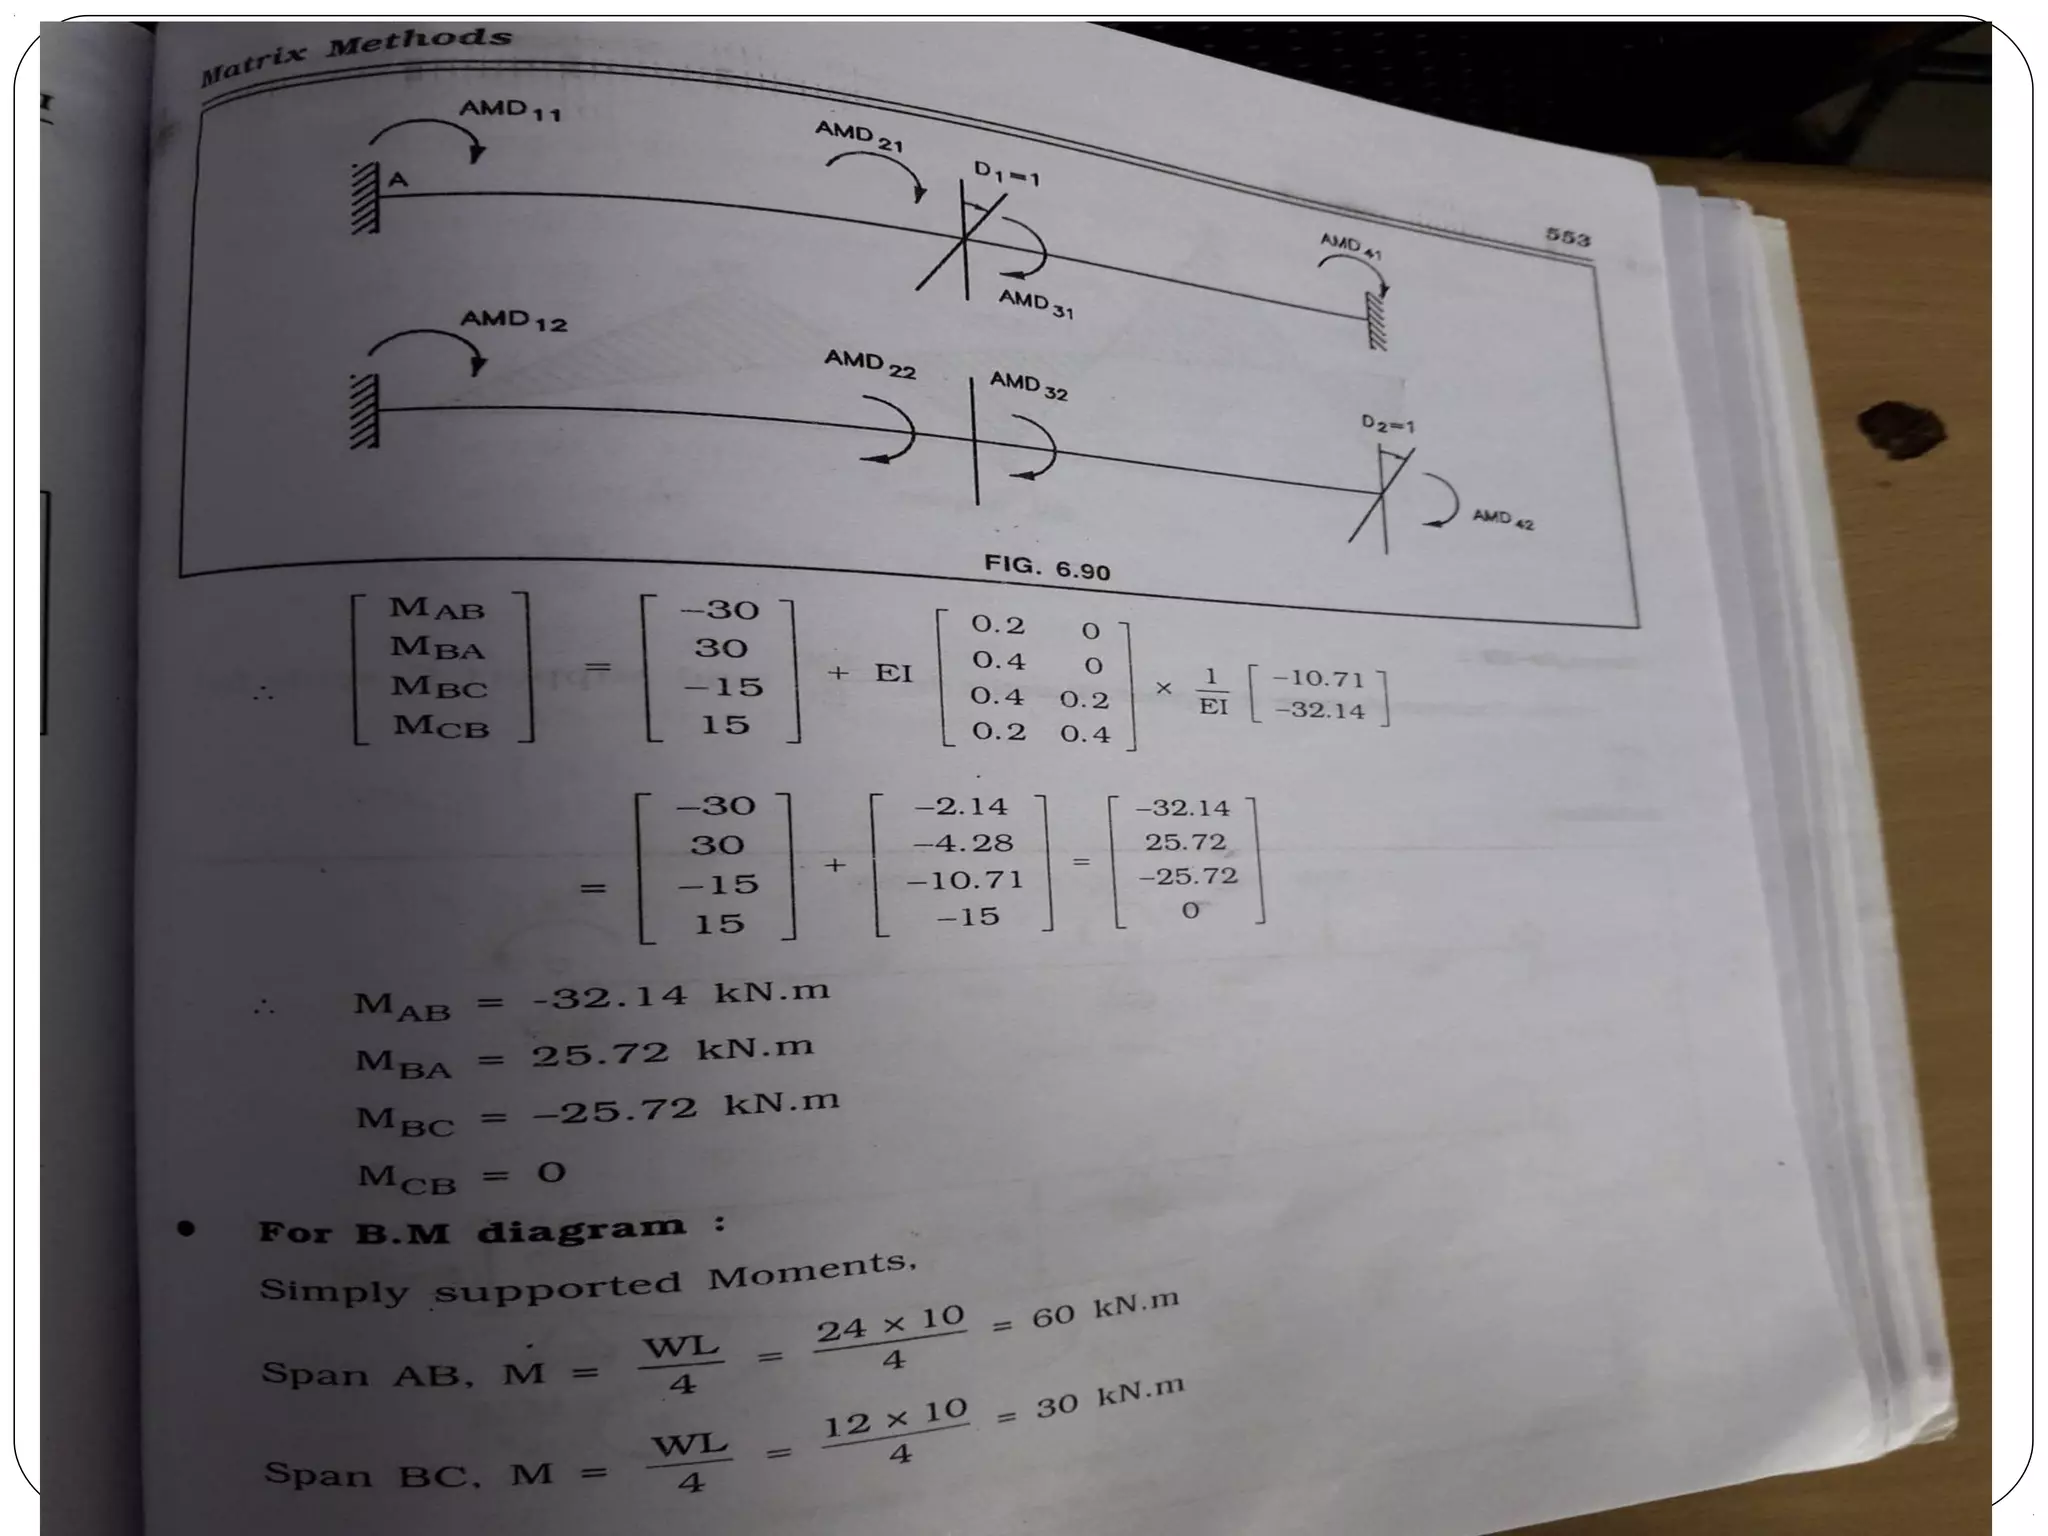 Matrix Methods
553
AMD11
AMD21
D1=1
A
AMD31
AMD41
AMD12
AMD22
AMD32
D2=1
AMD42
FIG. 6.90
∴ [ MAB MBA MBC MCB ] = [ –30 30 –15 15 ] + EI [ 0.2 0 0.4 0 0.4 0.2 0.2 0.4 ] × 1/EI [ –10.71 –32.14 ]
= [ –30 30 –15 15 ] + [ –2.14 –4.28 –10.71 –15 ] = [ –32.14 25.72 –25.72 0 ]
∴ MAB = -32.14 kN.m
MBA = 25.72 kN.m
MBC = –25.72 kN.m
MCB = 0
• For B.M diagram :
Simply supported Moments,
Span AB, M = WL/4 = 24 × 10/4 = 60 kN.m
Span BC, M = WL/4 = 12 × 10/4 = 30 kN.m